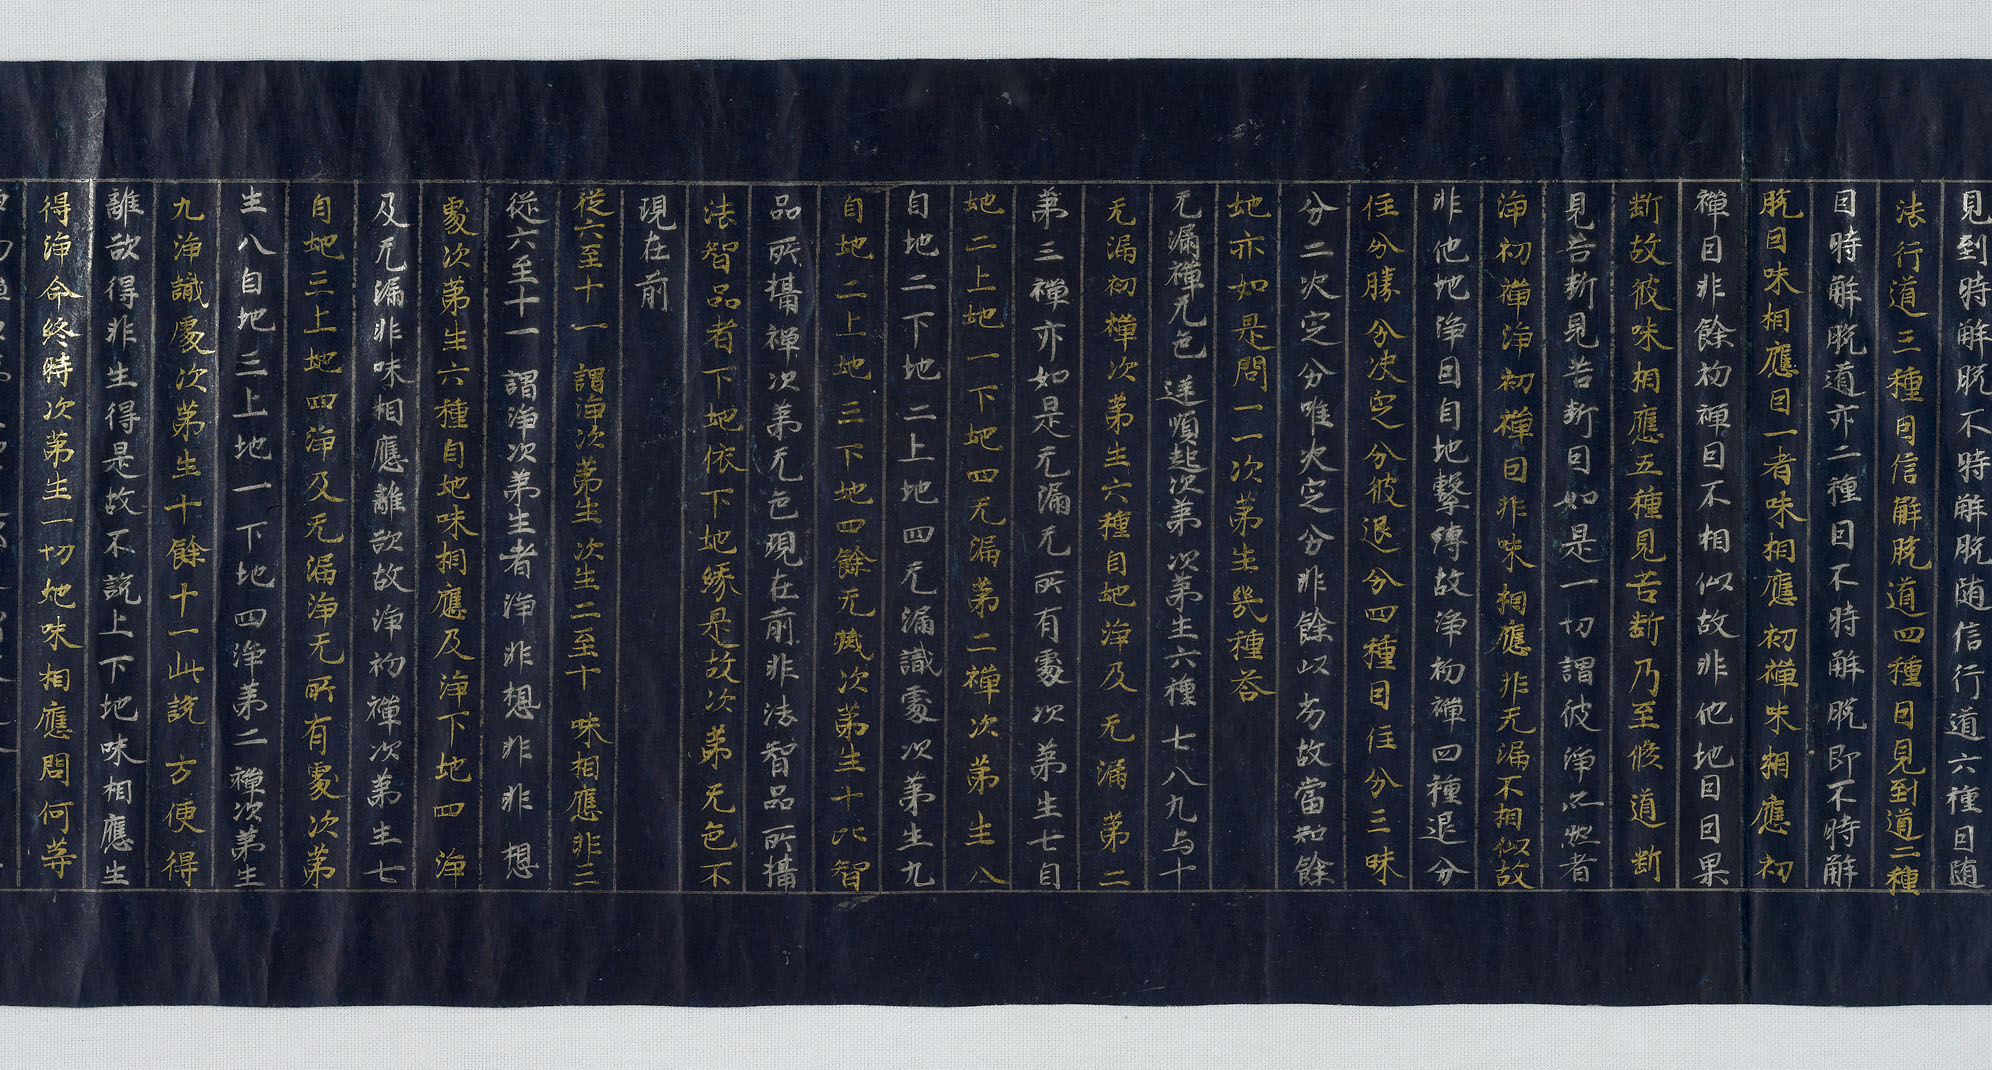 見到時解脫不時解脫随信行道六種因随
法行道三種因信解脫道四種因見到道二種
因時解脫道亦二種因不時解脫即不時解
脫因味相應因一者味相應初禪味相應初
禪因非餘初禪因不相似故非他地因因果
斷故彼味相應五種見苦斷乃至修道斷
見苦斷見苦斷因如是一切謂彼淨亦然者
淨初禪淨初禪因非味相應非无漏不相似故
非他地淨因自地繫縛故淨初禪四種退分
住分勝分决定分彼退分四種因住分三昧
分二次定分唯决定分非餘以劣故當知餘
地亦如是問一一次第生幾種荅
无漏禪无色 逆順起次第 次第生六種 七八九与十
无漏初禪次第生六種自地淨及无漏第二
第三禪亦如是无漏无所有處次第生七自
地二上地一下地四无漏第二禪次第生八
自地二下地二上地四无漏識處次第生九
自地二上地三下地四餘无漏次第生十比智
品所攝禪次第无色現在前非法智品所攝
法智品者下地依下地緣是故次第无色不
現在前
從六至十一 謂淨次第生 次生二至十 味相應非三
從六至十一謂淨次第生者淨非想非非想
處次第生六種自地味相應及淨下地四淨
及无漏非味相應離欲故淨初禪次第生七
自地三上地四淨及无漏淨无所有處次第
生八自地三上地一下地四淨第二禪次第生
九淨識處次第生十餘十一此說方便得
離欲得非生得是故不說上下地味相應生
得淨命終時次第生一切地味相應問何等